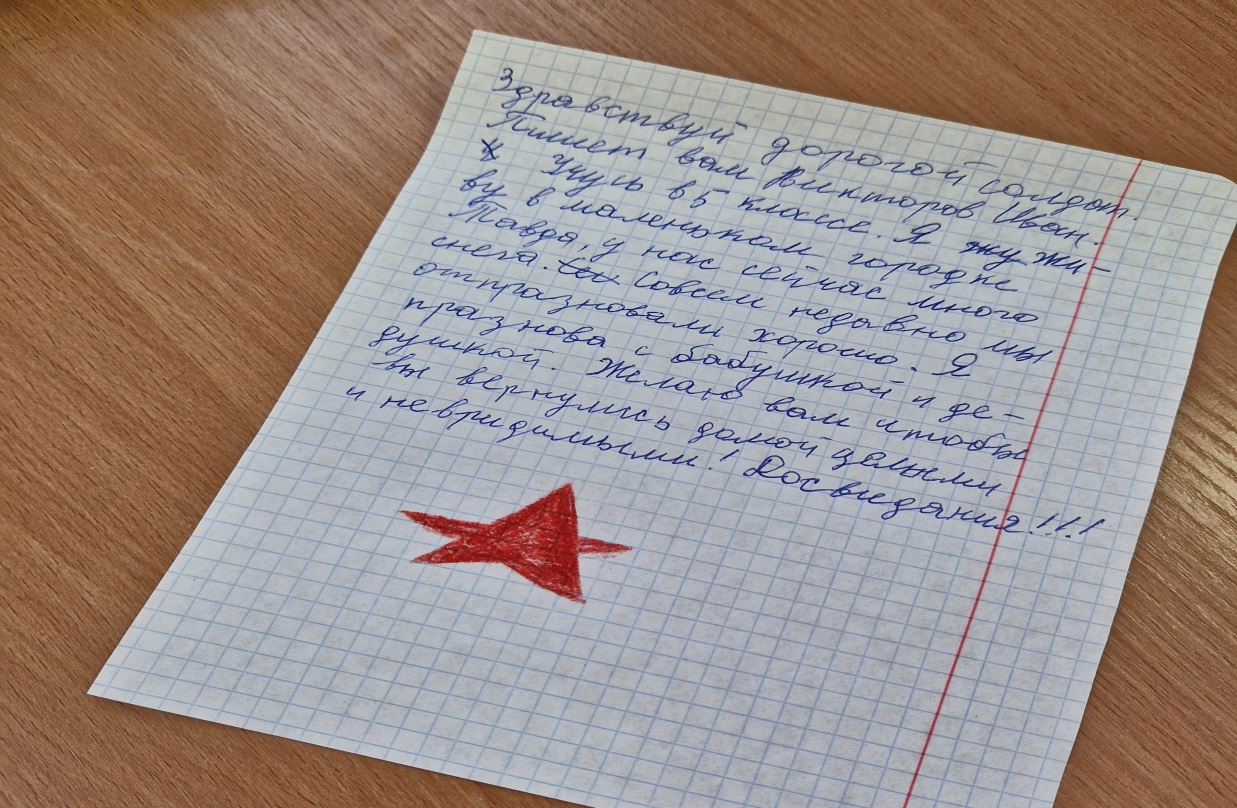 Здравствуй дорогой солдат.
Пишет вам Викторов Иван.
Учусь в 5 классе. Я жу жи-
ву в маленьком городке
Тавда, у нас сейчас много
снега. Сов Совсем недавно мы
отпразновали хорошо. Я
празнова с бабушкой и де-
душкой. Желаю вам чтобы
вы вернулись домой целыми
и невридимыми! Досвидания!!!